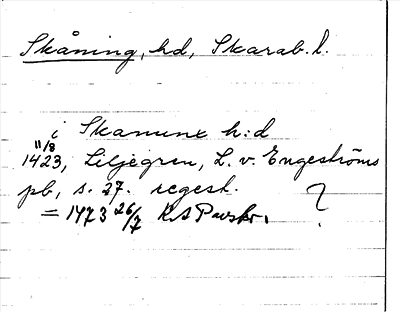 Skåning, hd, Skarab. l.
i Skanune h:d
11/8
1423, Liljegren, L. v. Engeströms
pb, s. 27. regest. ?
= 1473 26/7 RA Pavskr.